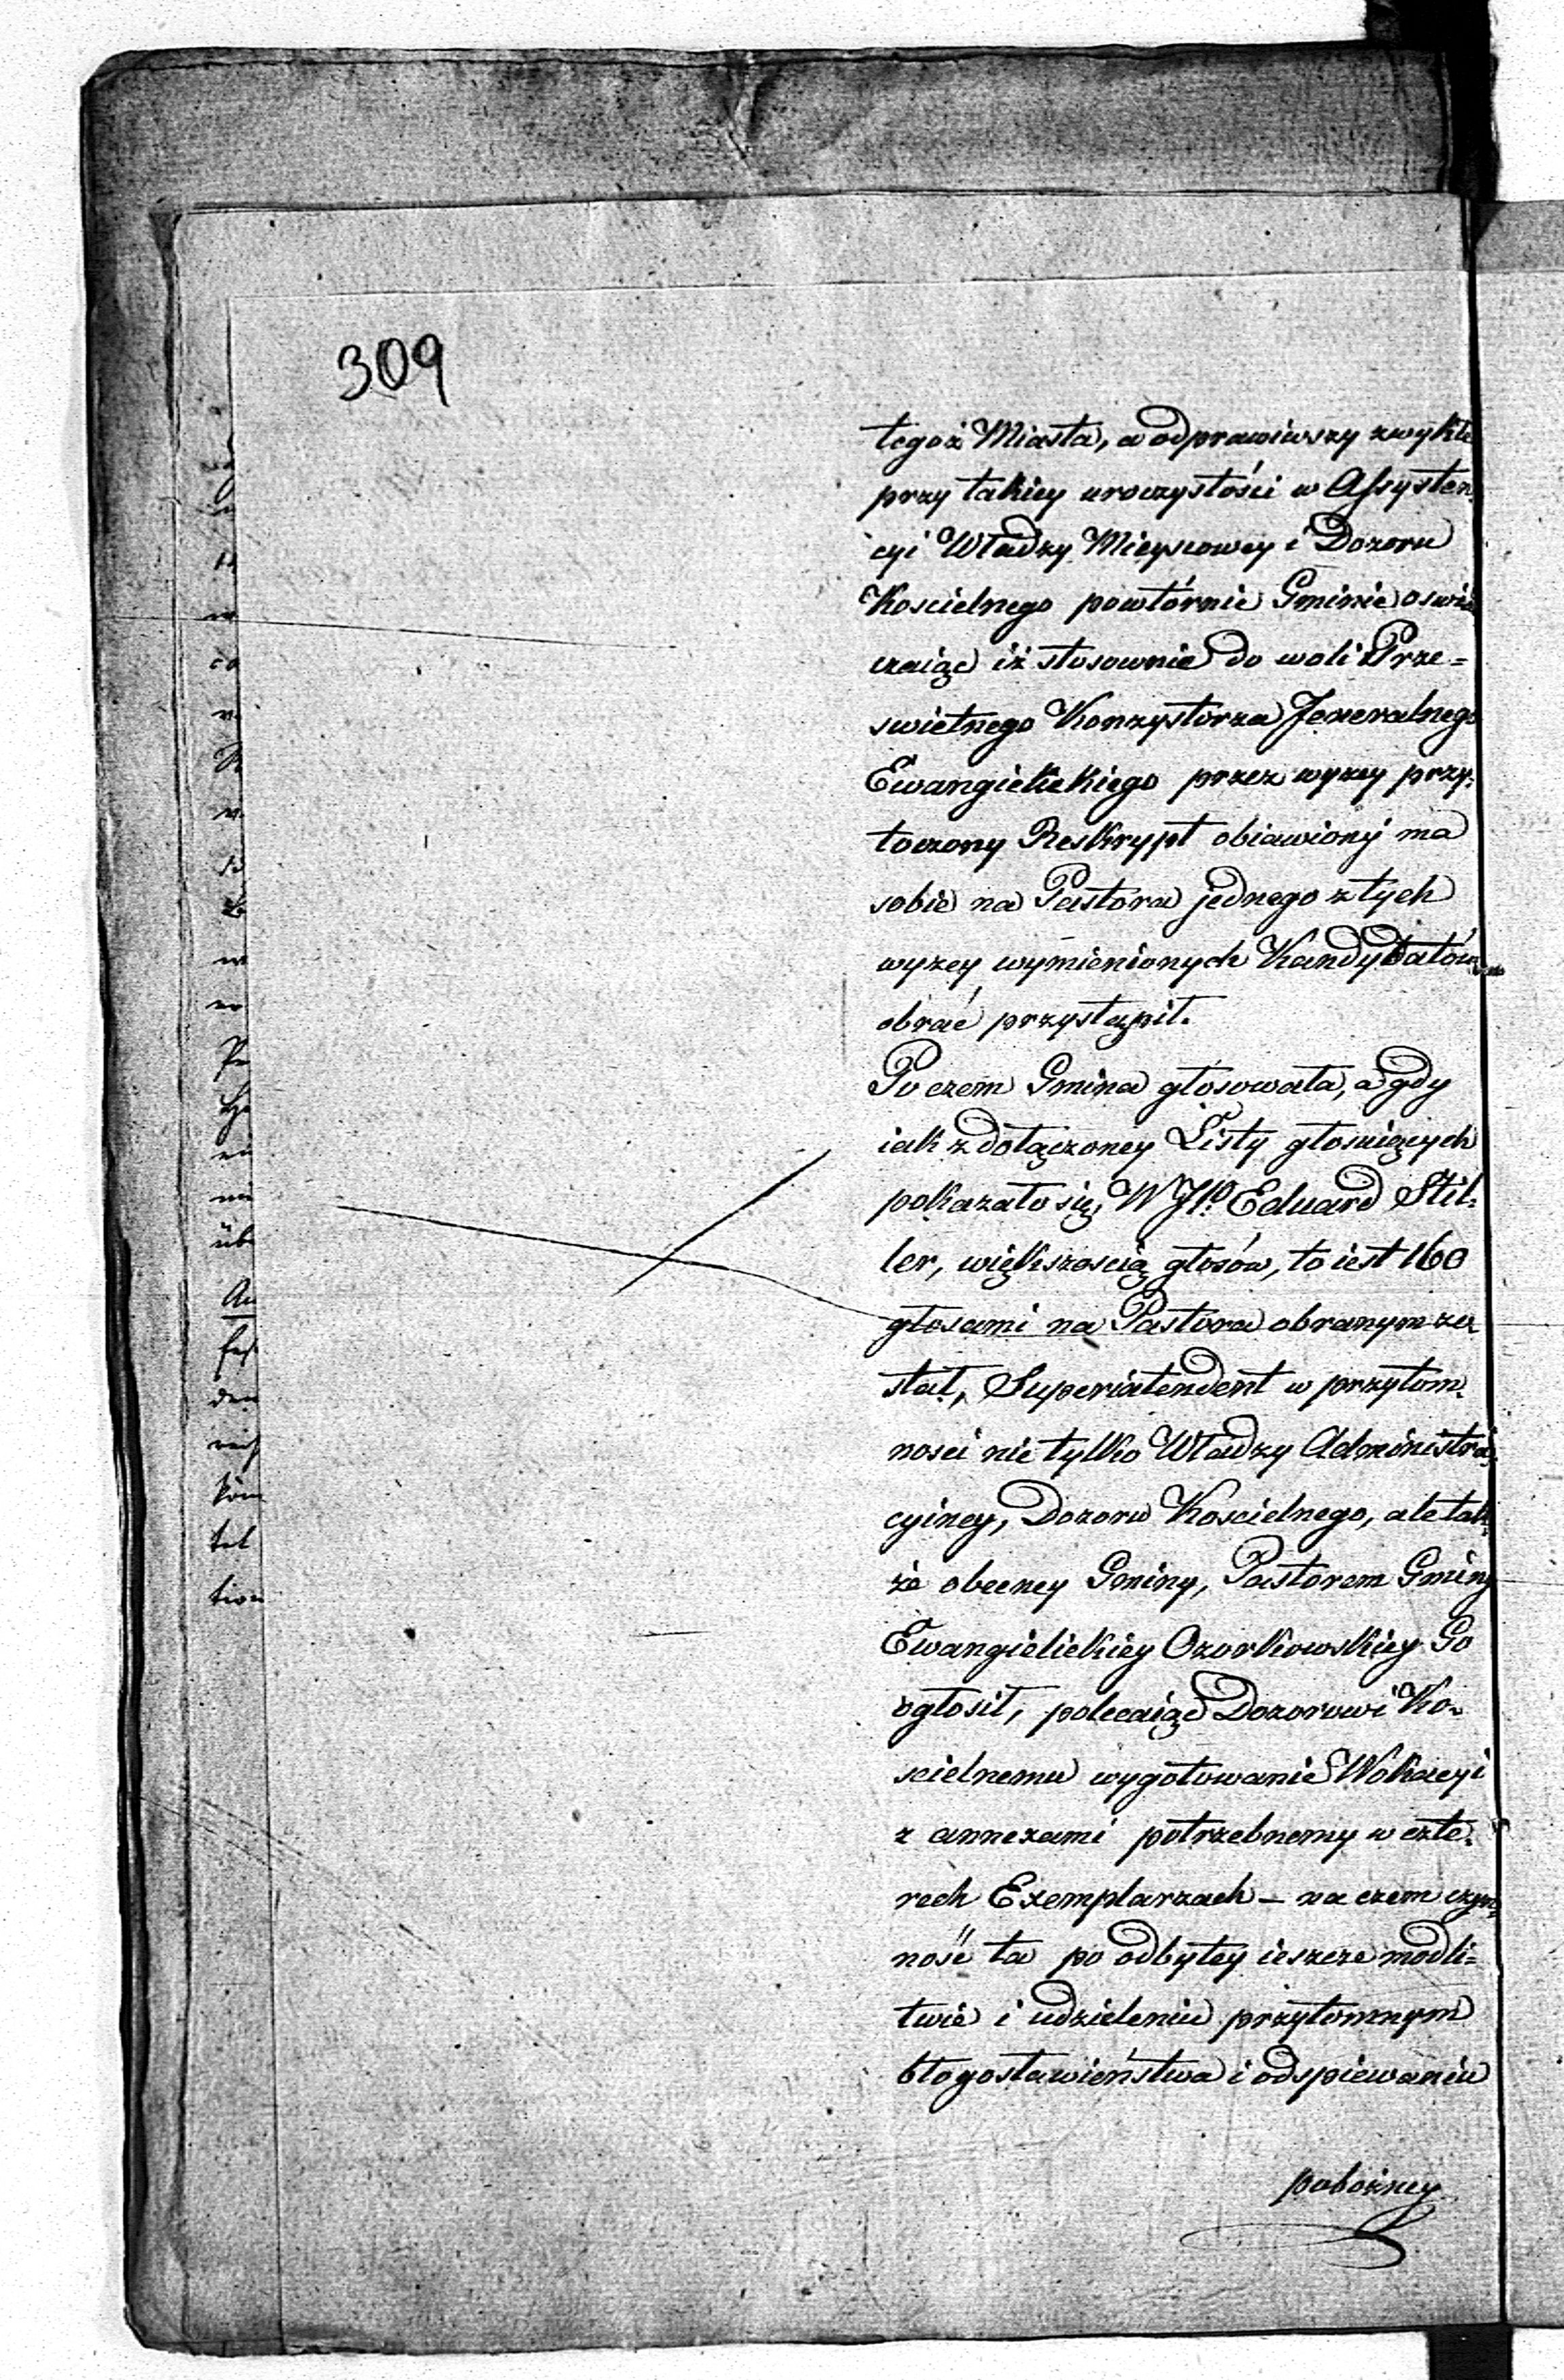 309
tegoż Miasta, a odprawiwszy zwykłe
przy takiey uroczystości w Assysten
cyi Władzy Mieyscowey i Dozoru
Koscielnego powtórnie Gminie oswia
czaiąc iż stosownie do woli Prze=
swietnego Konzystorza Jeneralnego
Ewangielickiego przez wyzey przy-
toczony Reskrypt obiawioney ma
sobie na Pastora jednego z tych
wyzey wymienionych Kandydatów
obrać przystąpił.
Po czem Gmina głosowała, a gdy
iak z dołączoney Listy głosuiących
pokazało się, W JP. Eduard Stil-
ler, większoscią głosów, to iest 160
głosami na Pastora obranym zo
stał, Superintendent w przytom-
nosci nie tylko Władzy Administra
cyiney, Dozoru Koscielnego, ale tak
że obecney Gminy, Pastorem Gminy
Ewangielickiey Ozorkowskiey Go
ogłosił, polecaiąc Dozorowi Ko-
scielnemu wygotowanie Wokacyi
z annexami potrzebnemy w czte-
rech Exemplarzach – na czem czyn
ność ta po odbytey ieszcze modli=
twie i udzieleniu przytomnym
błogosławieństwa i odspiewaniu
pobożney